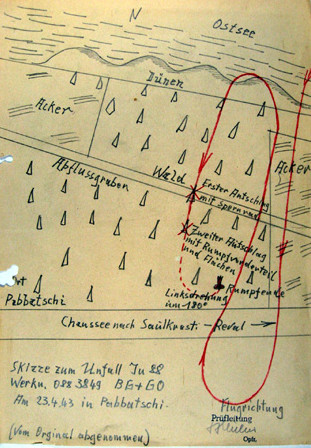 N
Ostsee
Dünen
Acker
Acker
Wald
Abflussgraben
Erster Aufschlag
mit Sporn rad
Zweiter Aufschlag
mit Rumpfvorderteil
und Flächen
Rumpfende
Linksdrehung
um 180°
Ort
Pabbatschi
Chaussee nach Saulkrast. - Reval →
Skizze zum Unfall Ju 88
Werkn. 088 3849 BG+GO
Am 23.4.43 in Pabbatschi.
Flugrichtung
Prüfleitung
Oph.
(Vom Orginal abgenommen)